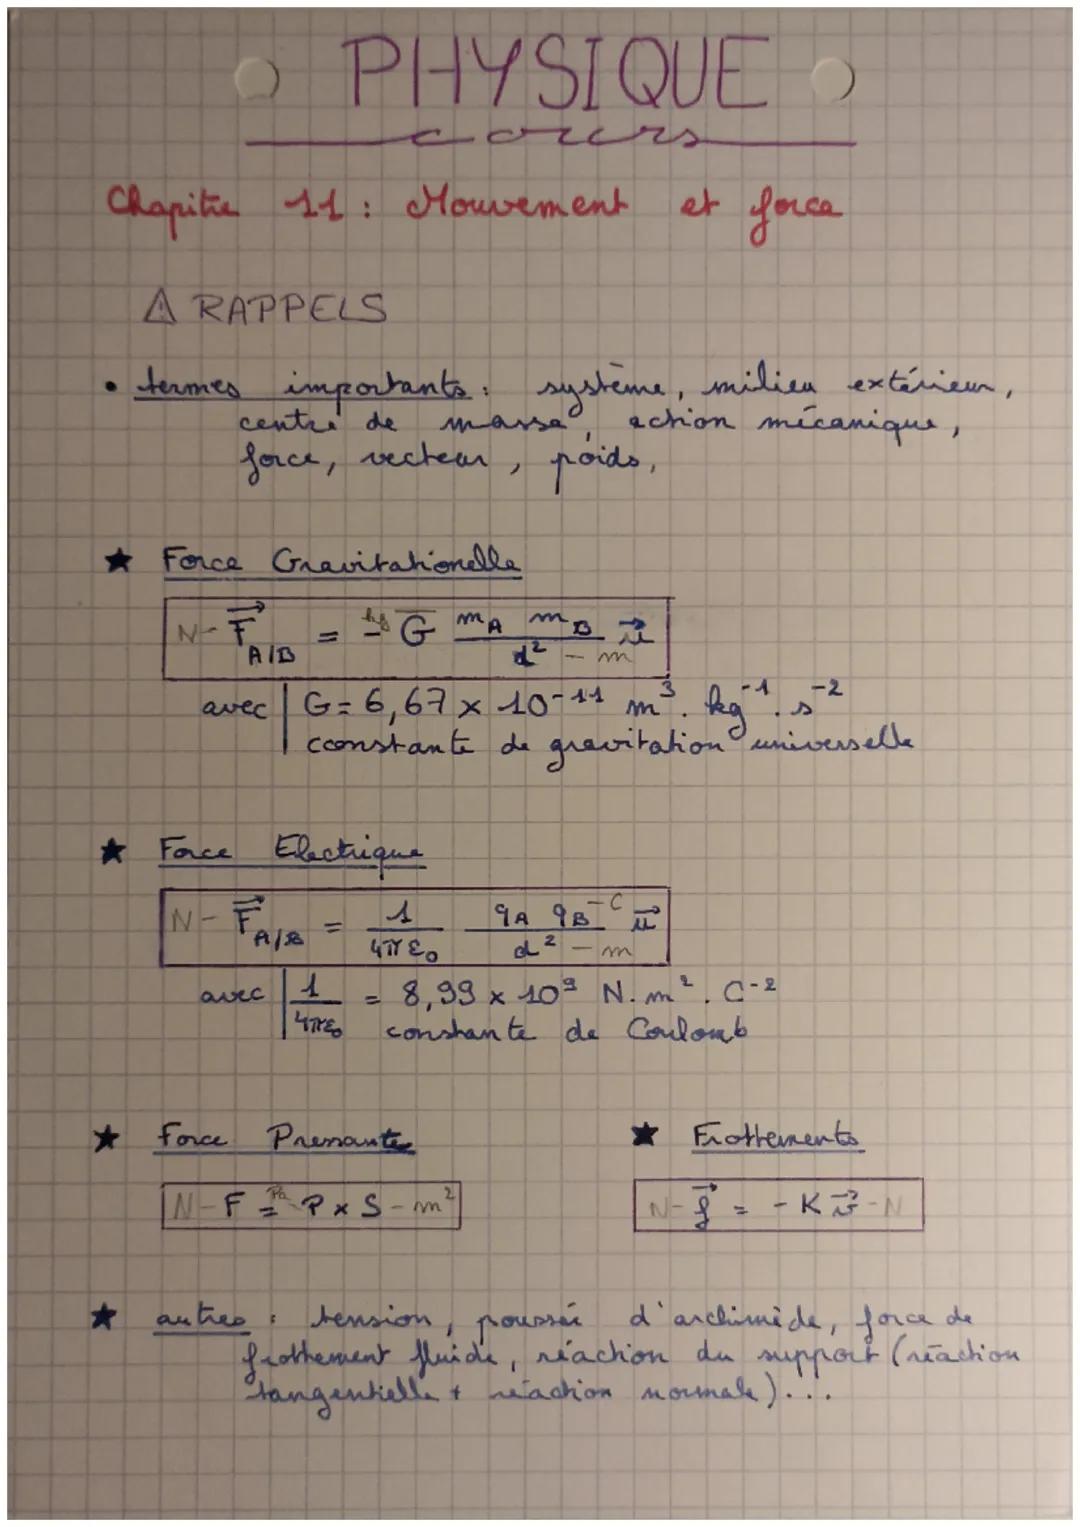 PHYSIQUE
cours
Chapitre 11 : Mouvement et force
⚠ RAPPELS
• termes importants : système, milieu extérieur,
centre de masse, action mécanique,
force, vecteur, poids,
★ Force Gravitationelle
N - F⃗ A/B = - kg G mA mB / d² - m u⃗
avec | G = 6,67 × 10-11 m³. kg⁻¹. s⁻²
cconstante de gravitation universelle
★ Force Electrique
N - F⃗ A/B = 1 / 4πε₀ qA qB - C / d² - m u⃗
avec | 1 / 4πε₀ = 8,99 × 10⁹ N. m². C-²
constante de Coulomb
★ Force Pressante ★ Frottements
N - F = Pa - P × S - m² N - f⃗ = - K v⃗ - N
★ autres : tension, poussée d'archimède, force de
frottement fluide, réaction du support (réaction
tangentielle + réaction normale)...